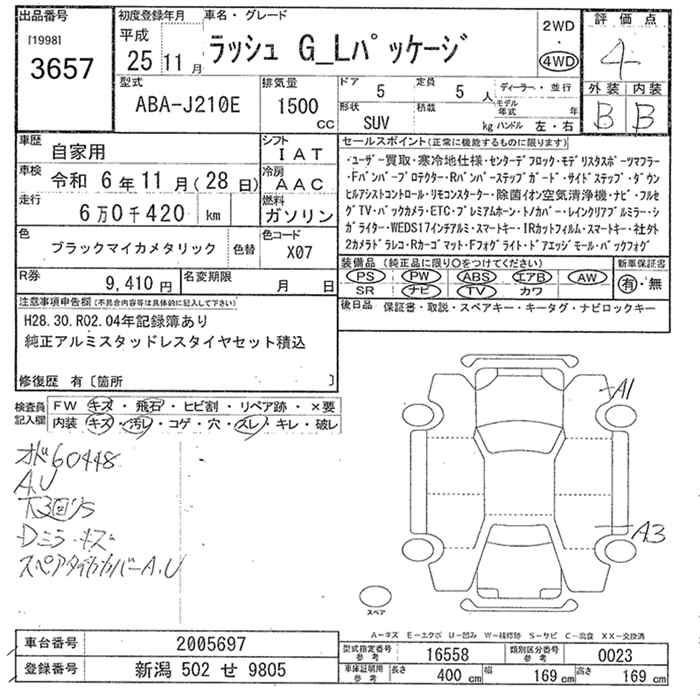 出品番号
[1998]
3657
初度登録年月
平成
25 11月
車名・グレード
ラッシュ G_Lパッケージ
2WD
・
4WD
評価点
4
外装 内装
B B
型式
ABA-J210E
排気量
1500
CC
ドア
5
定員
5 人
形状
SUV
積載
kg
ディーラー・並行
モデル年式 年
ハンドル 左・右
車歴
自家用
シフト
IAT
車検
令和 6年11月(28日)
冷房
AAC
走行
6万0千420 km
燃料
ガソリン
色
ブラックマイカメタリック
色替
色コード
X07
R券
9,410円
名変期限
月 日
セールスポイント(正常に機能するものに限ります)
・ユーザー買取・寒冷地仕様・センターデフロック・モデリスタスポーツマフラー
・Fバンパープロテクター・Rバンパーステップガード・サイドステップ・ダウン
ヒルアシストコントロール・リモコンスターター・除菌イオン空気清浄機・ナビ・フルセ
グTV・バックカメラ・ETC・プレミアムホーン・トノカバー・レインクリアブルミラー・シ
ガライター・WEDS17インチアルミ・スマートキー・IRカットフィルム・スマートキー・社外ト
2カメラドラレコ・Rカーゴマット・Fフォグライト・ドアエッジモール・バックフォグ
装備品(純正品に限り〇をつけてください)
PS PW ABS エアB AW
SR ナビ TV カワ
新車保証書
有・無
後日品 保証書・取説・スペアキー・キータグ・ナビロックキー
注意事項申告欄(不具合内容等は具体的に記入して下さい)
H28.30.R02.04年記録簿あり
純正アルミスタッドレスタイヤセット積込
修復歴 有〔箇所 〕
検査員記入欄
FW キズ・飛石・ヒビ割・リペア跡・×要
内装 キズ・汚レ・コゲ・穴・スレ・キレ・破レ
オド60448
A.U
下回りS
Dミラーキズ
スペアタイヤカバーA.U
A1
A3
スペア
A-キズ E-エクボ U-凹み W-補修跡 S-サビ C-腐食 XX-交換済
車台番号 2005697
登録番号 新潟 502 せ 9805
型式指定番号 参考 16558
類別区分番号 参考 0023
車庫証明用 参考
長さ 400 cm
幅 169 cm
高さ 169 cm